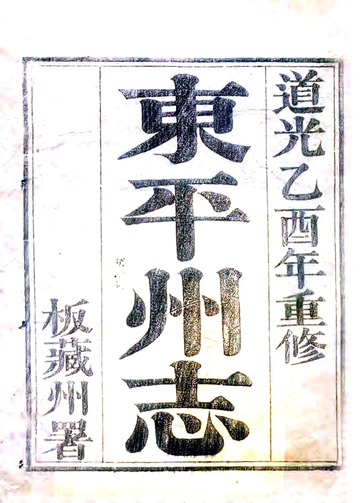 道光乙酉年重修
東平州志
板藏州署